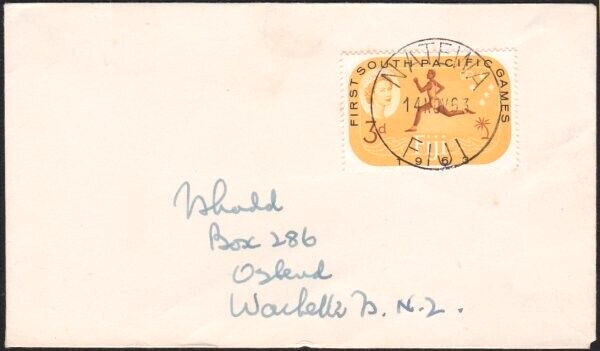 FIRST SOUTH PACIFIC GAMES
NATEWA
14 NOV 63
FIJI
3d
Fiji
1963
Box 286
Ostend
Waiheke Is. N.Z.